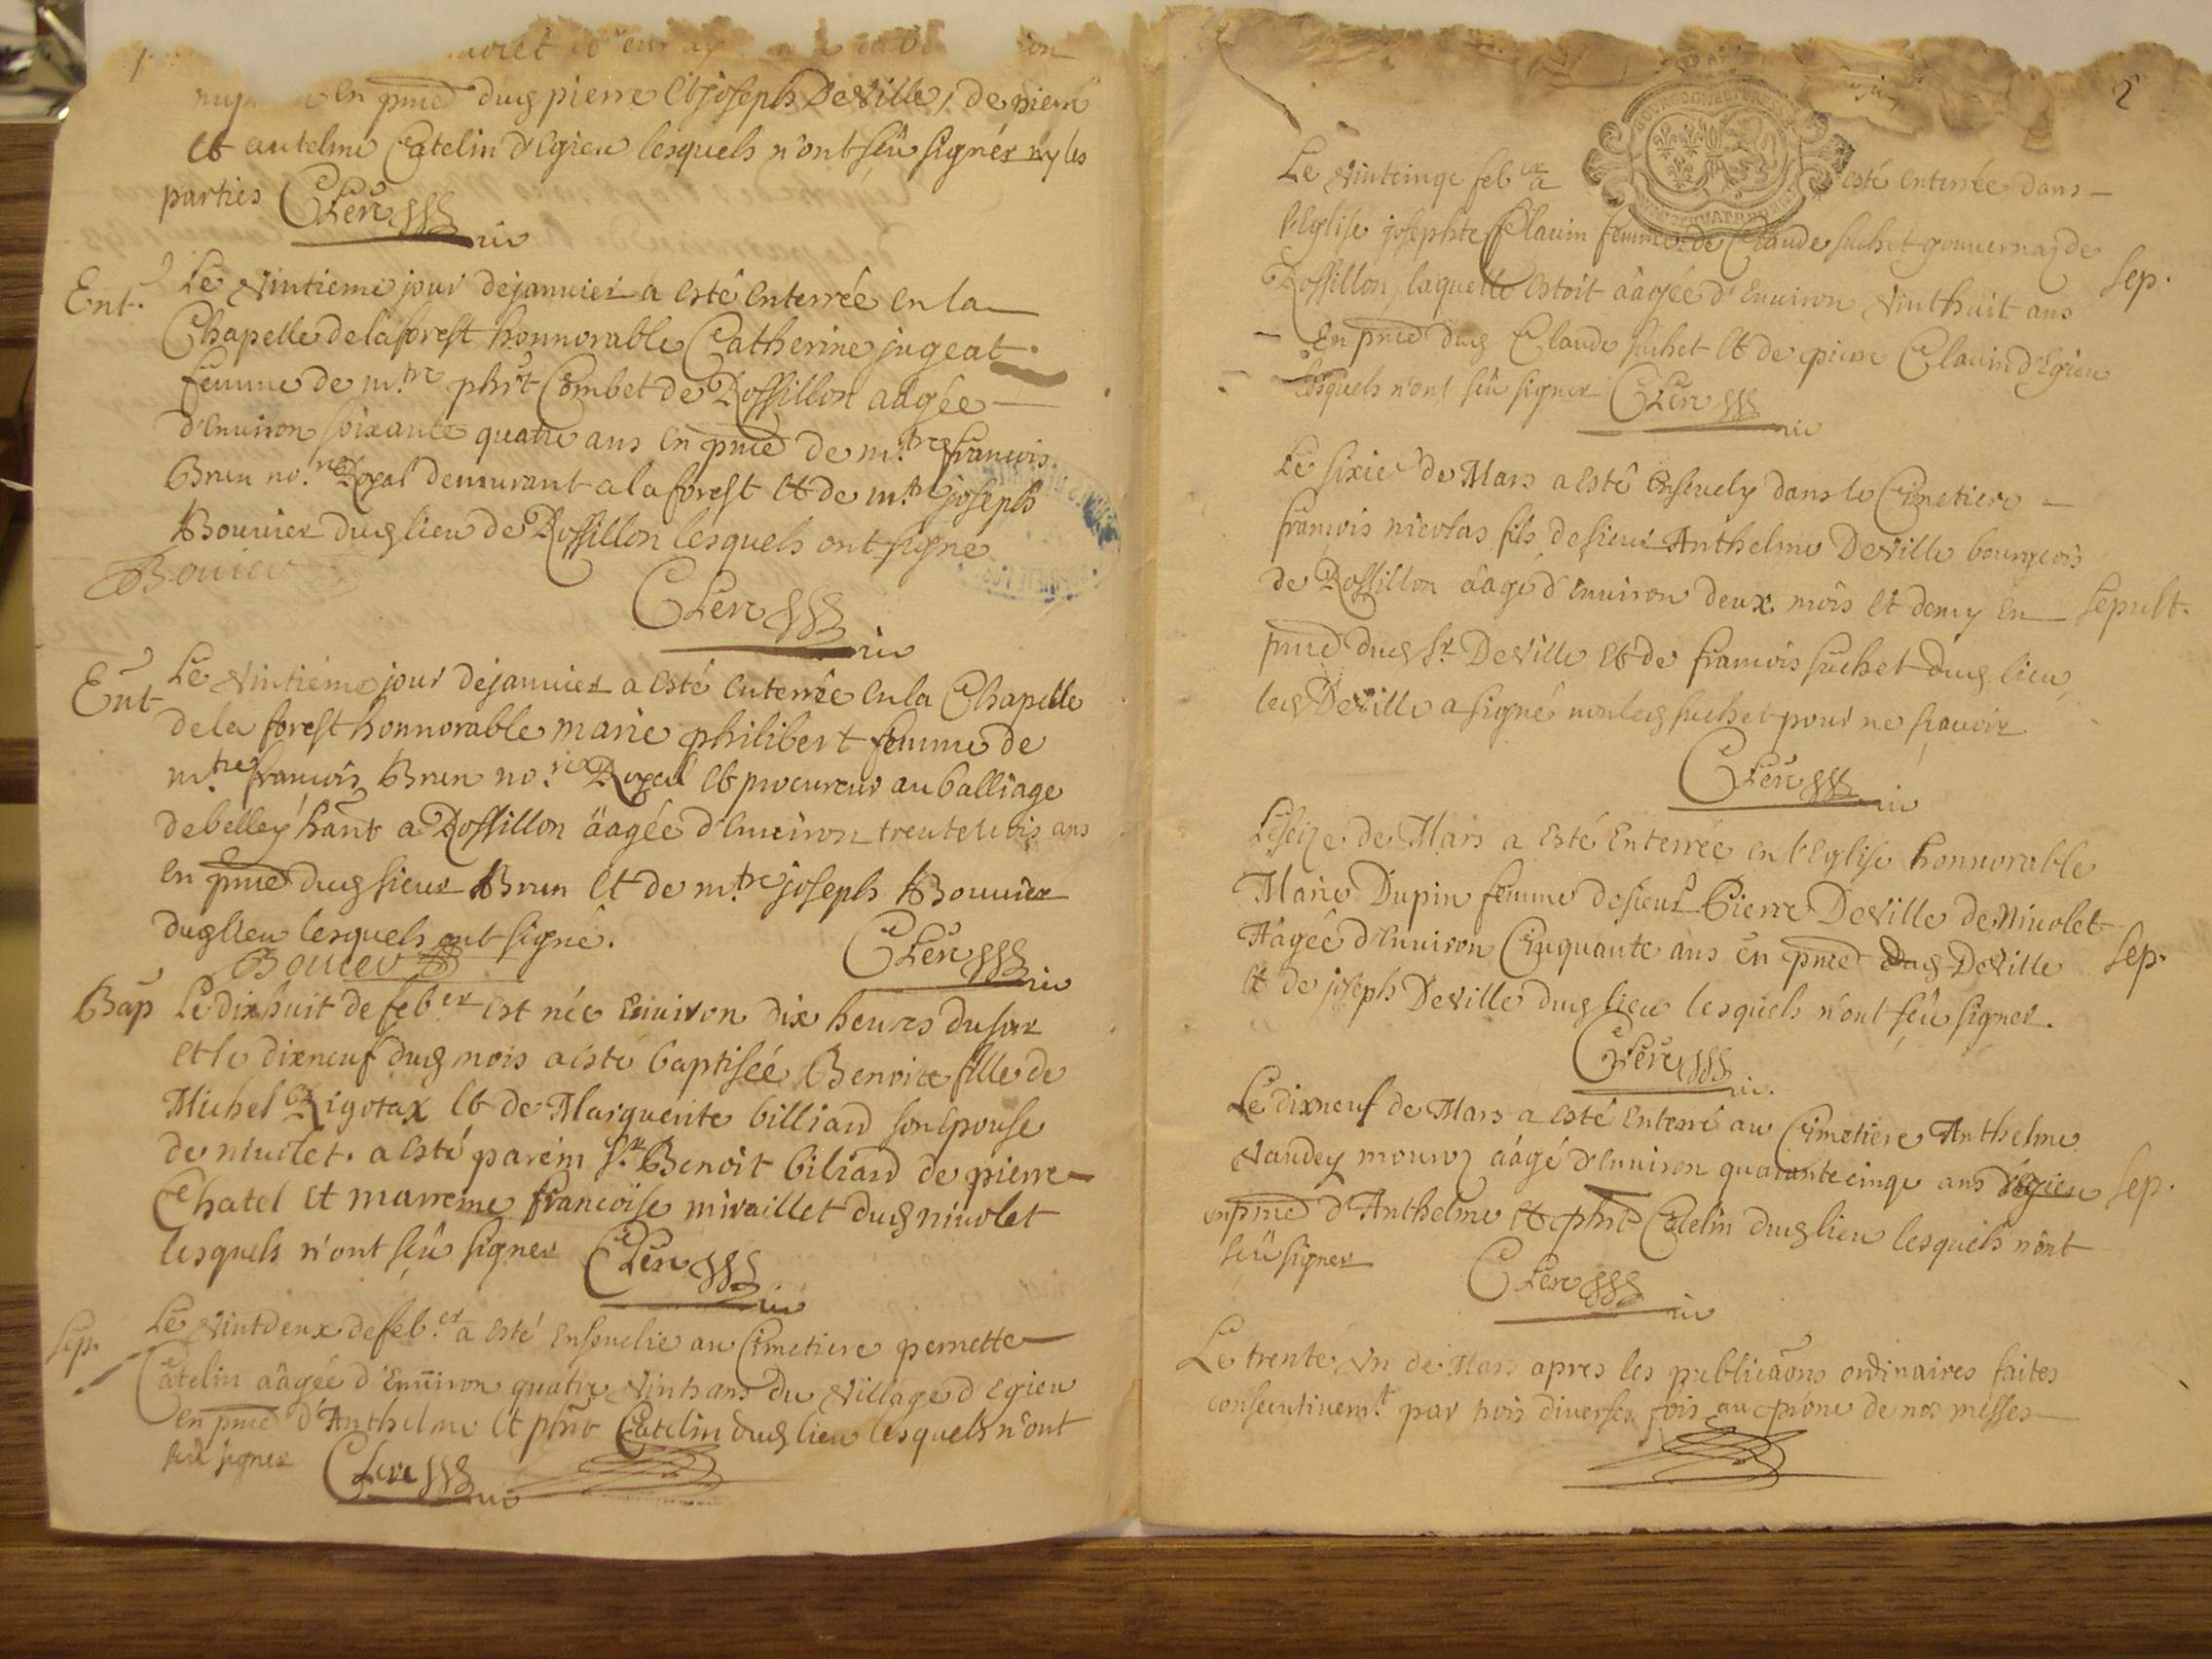 en pnce dud pierre et joseph DeVille, de pierre
et antelme Catelin d'Egieu lesquels n'ont sçû signér ny les
parties Clerc
vic
Ent. Le Vintieme jour de janvier a esté enterrée en la
Chapelle de la forest honnorable Catherine jugeat
femme de m.tre phit Combet de Rossillon aagée
d'Environ soixante quatre ans en pnce de m.tre francois
Brun no.re Royal demeurant a la forest et de m.tre joseph
Bouvier dud lieu de Rossillon lesquels ont signé
Bouier
Clerc
vic
Ent Le Vintieme jour de janvier a esté enterrée en la Chapelle
de la forest honnorable marie philibert femme de
m.tre francois Brun no.re Royal et procureur au balliage
de belley hant a Rossillon äagée d'Environ trente trois ans
en pnce dud sieur Brun et de m.tre joseph Bouvier
dud lieu lesquels ont signé.
Bouier Clerc
vic
Bap Le dixhuit de feb.er est née Environ dix heures du soir
et le dixneuf dud mois a esté baptisée Benoite fille de
Michel Rigotax et de Marguerite billiard son Epouse
de nivolet. a esté parein Sr Benoit biliard de pierre
Chatel et marreine francoise miraillet dud nivolet
lesquels n'ont sçû signer Clerc
vic
Sep. Le Vintdeux de feb.er a esté ensevelie au Cimetiere pernette
Catelin aagée d'Environ quatre Vints ans du Village d'Egieu
en pnce d'Anthelme et phit Catelin dud lieu lesquels n'ont
sçû signer Clerc
vic
2
Le Vintcinqe feb.er a esté enterrée dans
l'Eglise josephte Clavin femme de Claude suchet gouvernaz de
Rossillon, laquelle estoit äagée d'Environ Vinthuit ans Sep.
En pnce dud Claude suchet et de pierre Clavin d'Egieu
lesquels n'ont sçû signer Clerc
vic
Le sixie de Mars a esté ensevely dans le Cimetiere
françois nicolas fils de sieur Anthelme DeVille bourgeois
de Rossillon äagé d'Environ deux mois et demy En Sepult.
pnce dud Sr. DeVille et de francois suchet dud lieu
led DeVille a signé non led suchet pour ne sçavoir
Clerc
vic
Le seize de Mars a esté Enterrée en l'Eglise honnorable
Marie Dupin femme de sieur Pierre DeVille de Nivolet
Aagée d'Environ Cinquante ans en pnce dud DeVille Sep.
et de joseph DeVille dud lieu lesquels n'ont sçû signer.
Clerc
vic.
Le dixneuf de Mars a esté Enterré au Cimetiere Anthelme
Vaudey äágé d'Environ quarantecinqe ans d'Egieu Sep.
en pnce d'Anthelme et phit Catelin dud lieu lesquels n'ont
sçû signer Clerc
vic
Le trente Vn de Mars apres les publicaons ordinaires faites
consecutivem.t par trois diverses fois au prône de nos messes